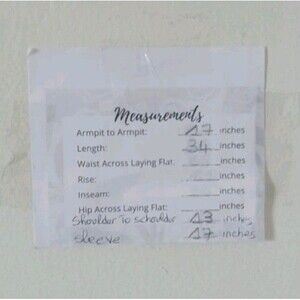 Measurements
Armpit to Armpit: 17 inches
Length: 34 inches
Waist Across Laying Flat: inches
Rise: inches
Inseam: inches
Hip Across Laying Flat: inches
Shoulder to schoulder 13 inches
sleeve 17 inches